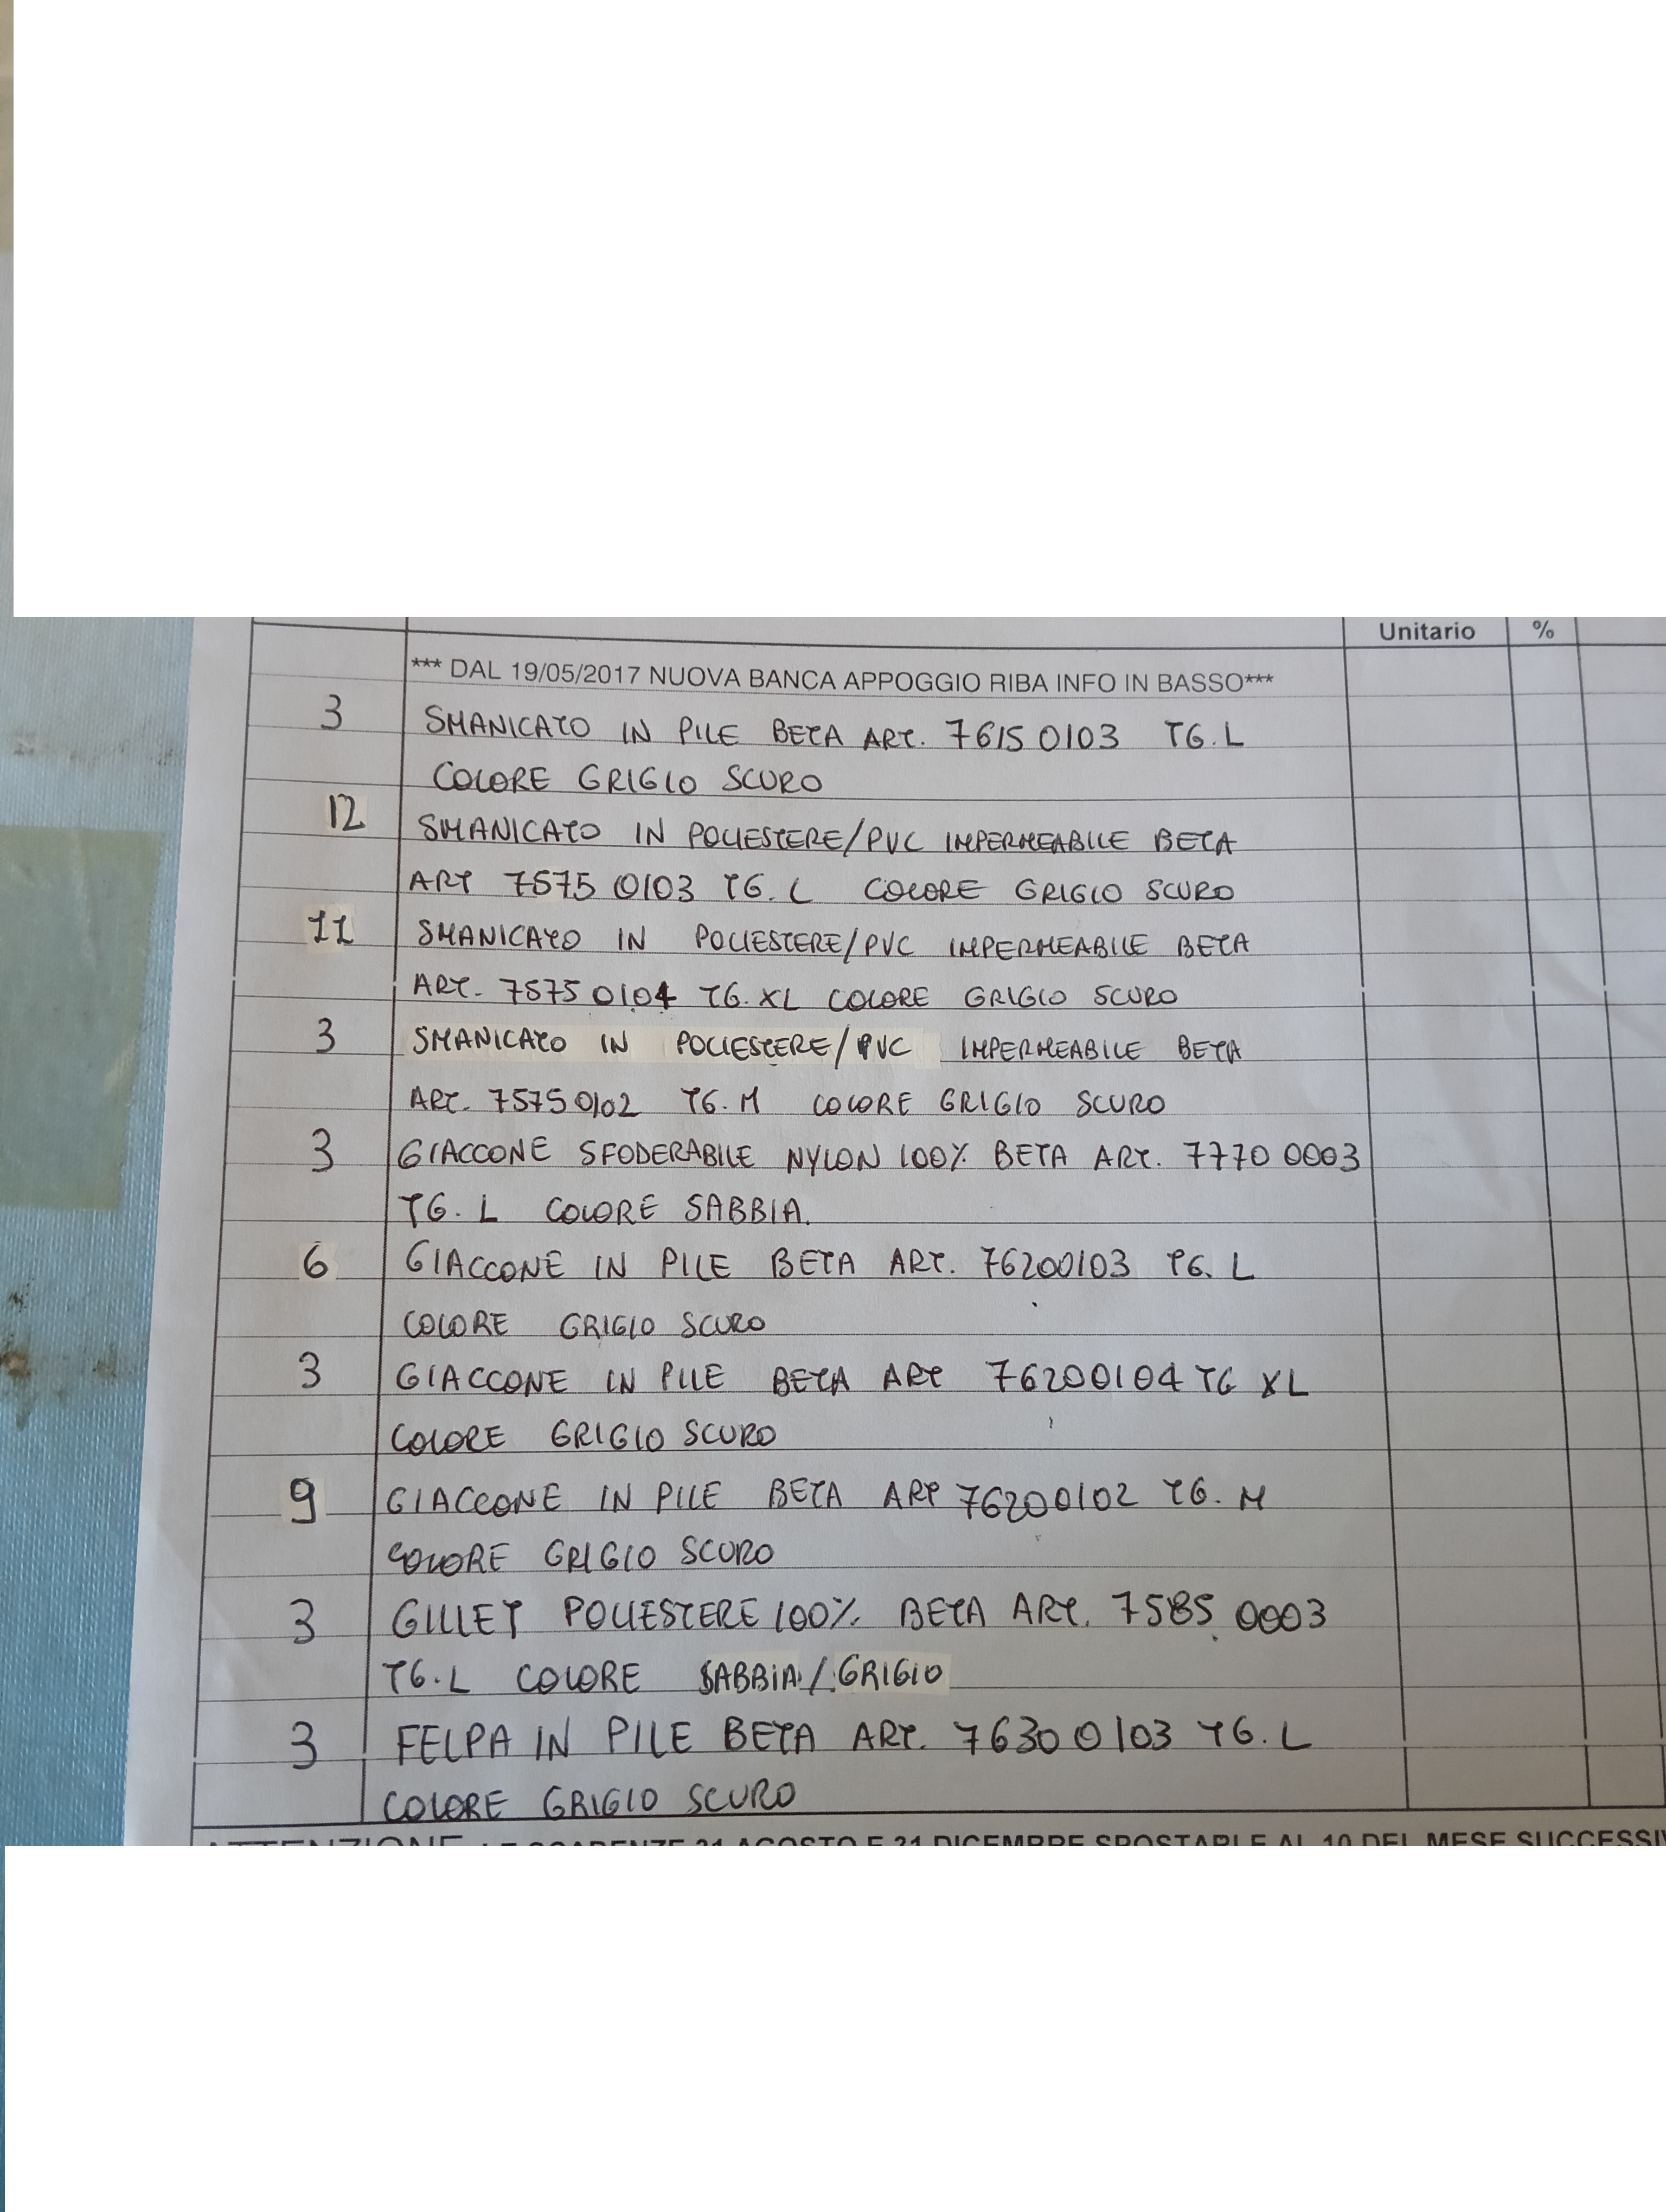 Unitario %
*** DAL 19/05/2017 NUOVA BANCA APPOGGIO RIBA INFO IN BASSO***
3 SMANICATO IN PILE BETA ART. 7615 0103 TG. L
COLORE GRIGIO SCURO
12 SMANICATO IN POLIESTERE/PVC IMPERMEABILE BETA
ART 7575 0103 TG. L COLORE GRIGIO SCURO
11 SMANICATO IN POLIESTERE/PVC IMPERMEABILE BETA
ART. 7575 0104 TG. XL COLORE GRIGIO SCURO
3 SMANICATO IN POLIESTERE/PVC IMPERMEABILE BETA
ART. 7575 0102 TG. M COLORE GRIGIO SCURO
3 GIACCONE SFODERABILE NYLON 100% BETA ART. 7770 0003
TG. L COLORE SABBIA.
6 GIACCONE IN PILE BETA ART. 76200103 TG. L
COLORE GRIGIO SCURO
3 GIACCONE IN PILE BETA ART 76200104 TG XL
COLORE GRIGIO SCURO
9 GIACCONE IN PILE BETA ART 76200102 TG. M
COLORE GRIGIO SCURO
3 GILLET POLIESTERE 100% BETA ART. 7585 0003
TG. L COLORE SABBIA/GRIGIO
3 FELPA IN PILE BETA ART. 7630 0103 TG. L
COLORE GRIGIO SCURO
ATTENZIONE: LE SCADENZE 31 AGOSTO E 31 DICEMBRE SPOSTARLE AL 10 DEL MESE